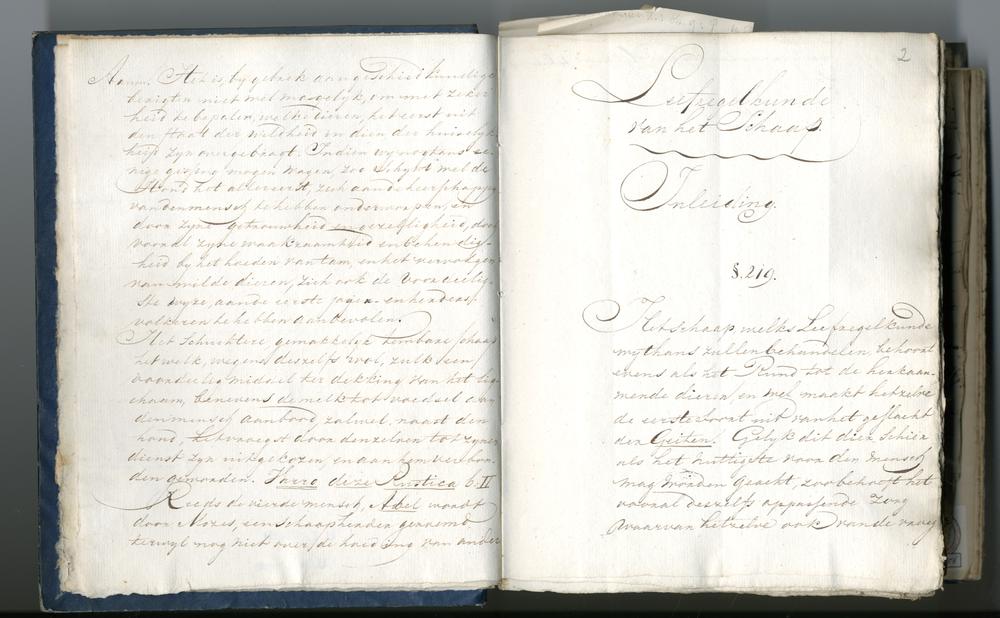 Aanm. Het is, by gebrek aan geschiedkundige
berigten niet wel mogelyk, om met zeker
heid te bepalen, welke dieren, het eerst uit
den staat der wildheid in dien der huiselyk
heid zyn overgebragt. Indien wy nogtans ee-
nige gissing mogen wagen, zoo schynt wel de
Hond het allereerst, zich aan de heerschappy
van den mensch te hebben onderworpen, en
door zyne getrouwheid en gezelligheid, doch
vooral zyne waakzaamheid en behendig-
heid by het hoeden van tam, en het vervolgen
van wilde dieren, zich ook de voordeelig-
ste wyze, aan de eerste jagers en herders
volkeren te hebben aanbevolen.
Het schuchtere gemakkelyk tembare schaap
het welk, wegens deszelfs wol, zulk een
voordeelig middel ter dekking van het lig-
chaam, benevens de melk tot voedsel aan
den mensch aanbood, zal wel, naast den
hond, het vroegst door denzelven tot zynen
dienst zyn uitgekozen, en aan hem verbon-
den geworden. Varro de re Rustica b. II
Reeds de vierde mensch, Abel wordt
door Mozes, een schaapherder genoemd
terwyl nog niet over de hoeding van ander
2
Leefregelkunde
van het Schaap.
Inleiding.
§. 219.
Het schaap, welks Leefregelkunde
wy thans zullen behandelen, behoort
evens als het Rund tot de herkaau-
wende dieren, en wel maakt hetzelve
de eerste soort uit van het geslacht
der Geiten. Gelyk dit dier schier
als het nuttigste voor den mensch
mag worden geacht, zoo behoeft het
vooral deszelfs oppassende zorg
waarvan hetzelve ook van de vroeg